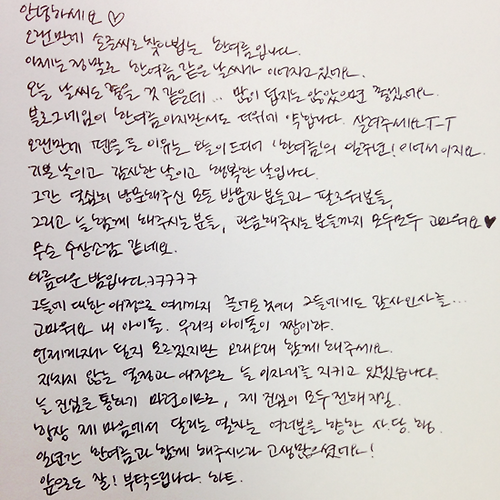 안녕하세요 ♡
오랜만에 손글씨로 찾아뵙는 한여름입니다.
이제는 정말로 한여름 같은 날씨가 이어지고 있네요.
오늘 날씨도 좋을 것 같은데 ... 많이 덥지는 않았으면 좋겠네요.
블로그네임이 한여름이지만서도 더위에 약합니다. 살려주세요T-T
오랜만에 펜을 든 이유는 오늘이 드디어 '한여름'의 일주년! 이어서 이지요.
기쁜 날이고 감사한 날이고 행복한 날입니다.
그간 열심히 방문해주신 모든 방문자분들과 팔로워분들,
그리고 늘 함께 해주시는 분들, 관음해주시는 분들까지 모두모두 고마워요♥
무슨 수상소감 같네요.
아름다운 밤입니다.ㅋㅋㅋㅋㅋ
그들에 대한 애정으로 여기까지 끌고 왔으니 그들에게도 감사인사를...
고마워요 내 아이돌. 우리의 아이돌이 짱이야.
언제까지가 될지 모르겠지만 오래오래 함께 해주세요.
지치지 않는 열정과 애정으로 늘 이 자리를 지키고 있겠습니다.
늘 진심은 통하기 마련이므로, 제 진심이 모두 전해지길.
항상 제 마음에서 달리는 열차는 여러분을 향한 사.당.행.
일년간 한여름과 함께 해주시느라 고생많으셨어요!
앞으로도 잘! 부탁드립니다. 하트.